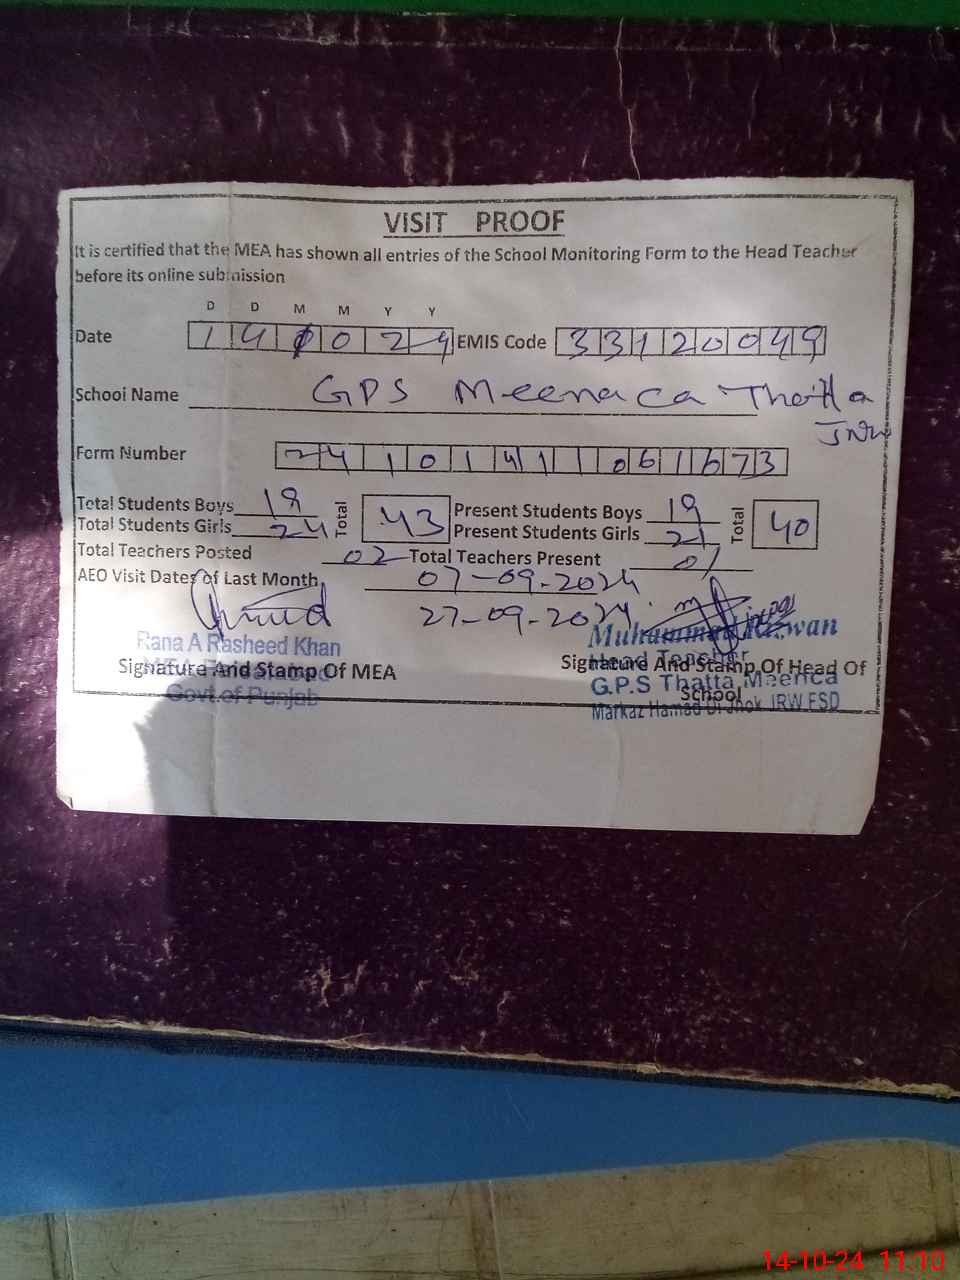 VISIT PROOF
It is certified that the MEA has shown all entries of the School Monitoring Form to the Head Teacher
before its online submission
D D M M Y Y
Date 1 4 1 0 2 4 EMIS Code 3 3 1 2 0 0 4 9
School Name GPS Meenaca Thatta
JRW
Form Number 2 4 1 0 1 4 1 1 0 6 1 6 7 3
Total Students Boys 19 Total 43 Present Students Boys 19 Total 40
Total Students Girls 24 Present Students Girls 21
Total Teachers Posted 02 Total Teachers Present
AEO Visit Dates of Last Month 07-09-2024
27-09-2024
Rana A Rasheed Khan
Signature And Stamp Of MEA
Govt.of Punjab
Muhammad Rizwan
Head Teacher
Signature And Stamp Of Head Of
School
G.P.S Thatta Meerica
Markaz Hamad Di Jhok JRW FSD
14-10-24 11:10